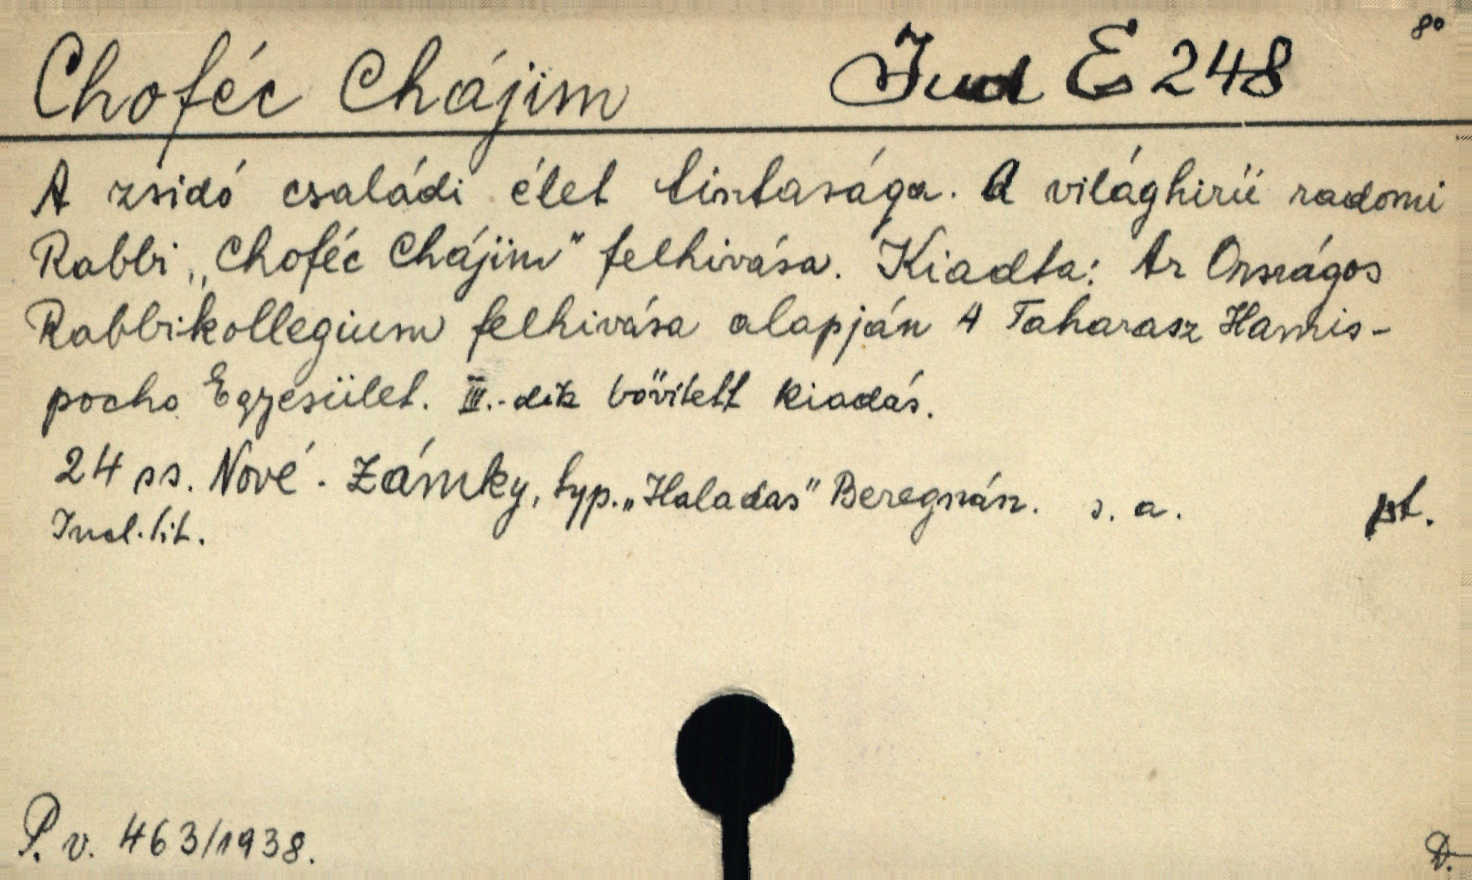 8°
Choféc Chájim Jud E 248
A zsidó családi élet tisztasága. A világhirü radomi
Rabbi „Choféc Chájim" felhivása. Kiadta: Az Országos
Rabbikollegium felhivása alapján A Taharasz Hamis-
pocho Egyesület. III.-dik bővitett kiadás.
24 ss. Nové-Zámky, typ. „Haladas" Beregszász. s. a.
Incl. tit.
P. v. 463/1938.
D.